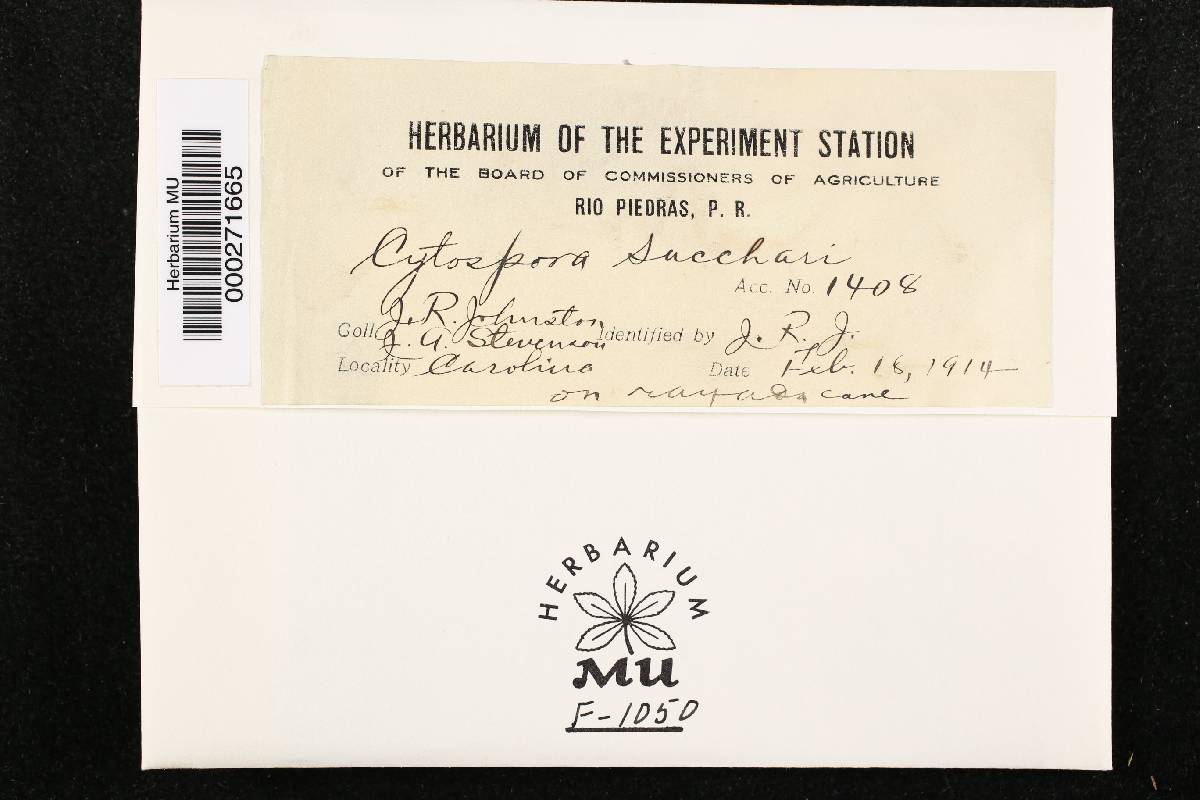 HERBARIUM OF THE EXPERIMENT STATION
OF THE BOARD OF COMMISSIONERS OF AGRICULTURE
RIO PIEDRAS, P. R.
Cytospora Sacchari
Acc. No. 1408
Coll. J. R. Johnston
J. A. Stevenson Identified by J. R. J.
Locality Carolina Date Feb. 18, 1914
on rayada cane
Herbarium MU
000271665
HERBARIUM
MU
F-1050